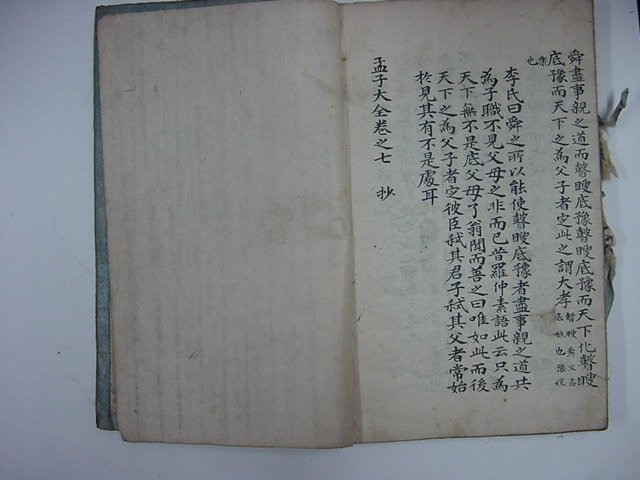 舜盡事親之道而瞽瞍底豫瞽瞍底豫而天下化瞽瞍
底豫而天下之為父子者定此之謂大孝 瞽瞍舜父名
底致也豫悅
樂也
李氏曰舜之所以能使瞽瞍底豫者盡事親之道共
為子職不見父母之非而已昔羅仲素語此云只為
天下無不是底父母了翁聞而善之曰唯如此而後
天下之為父子者定彼臣弑其君子弑其父者常始
於見其有不是處耳
孟子大全卷之七 抄